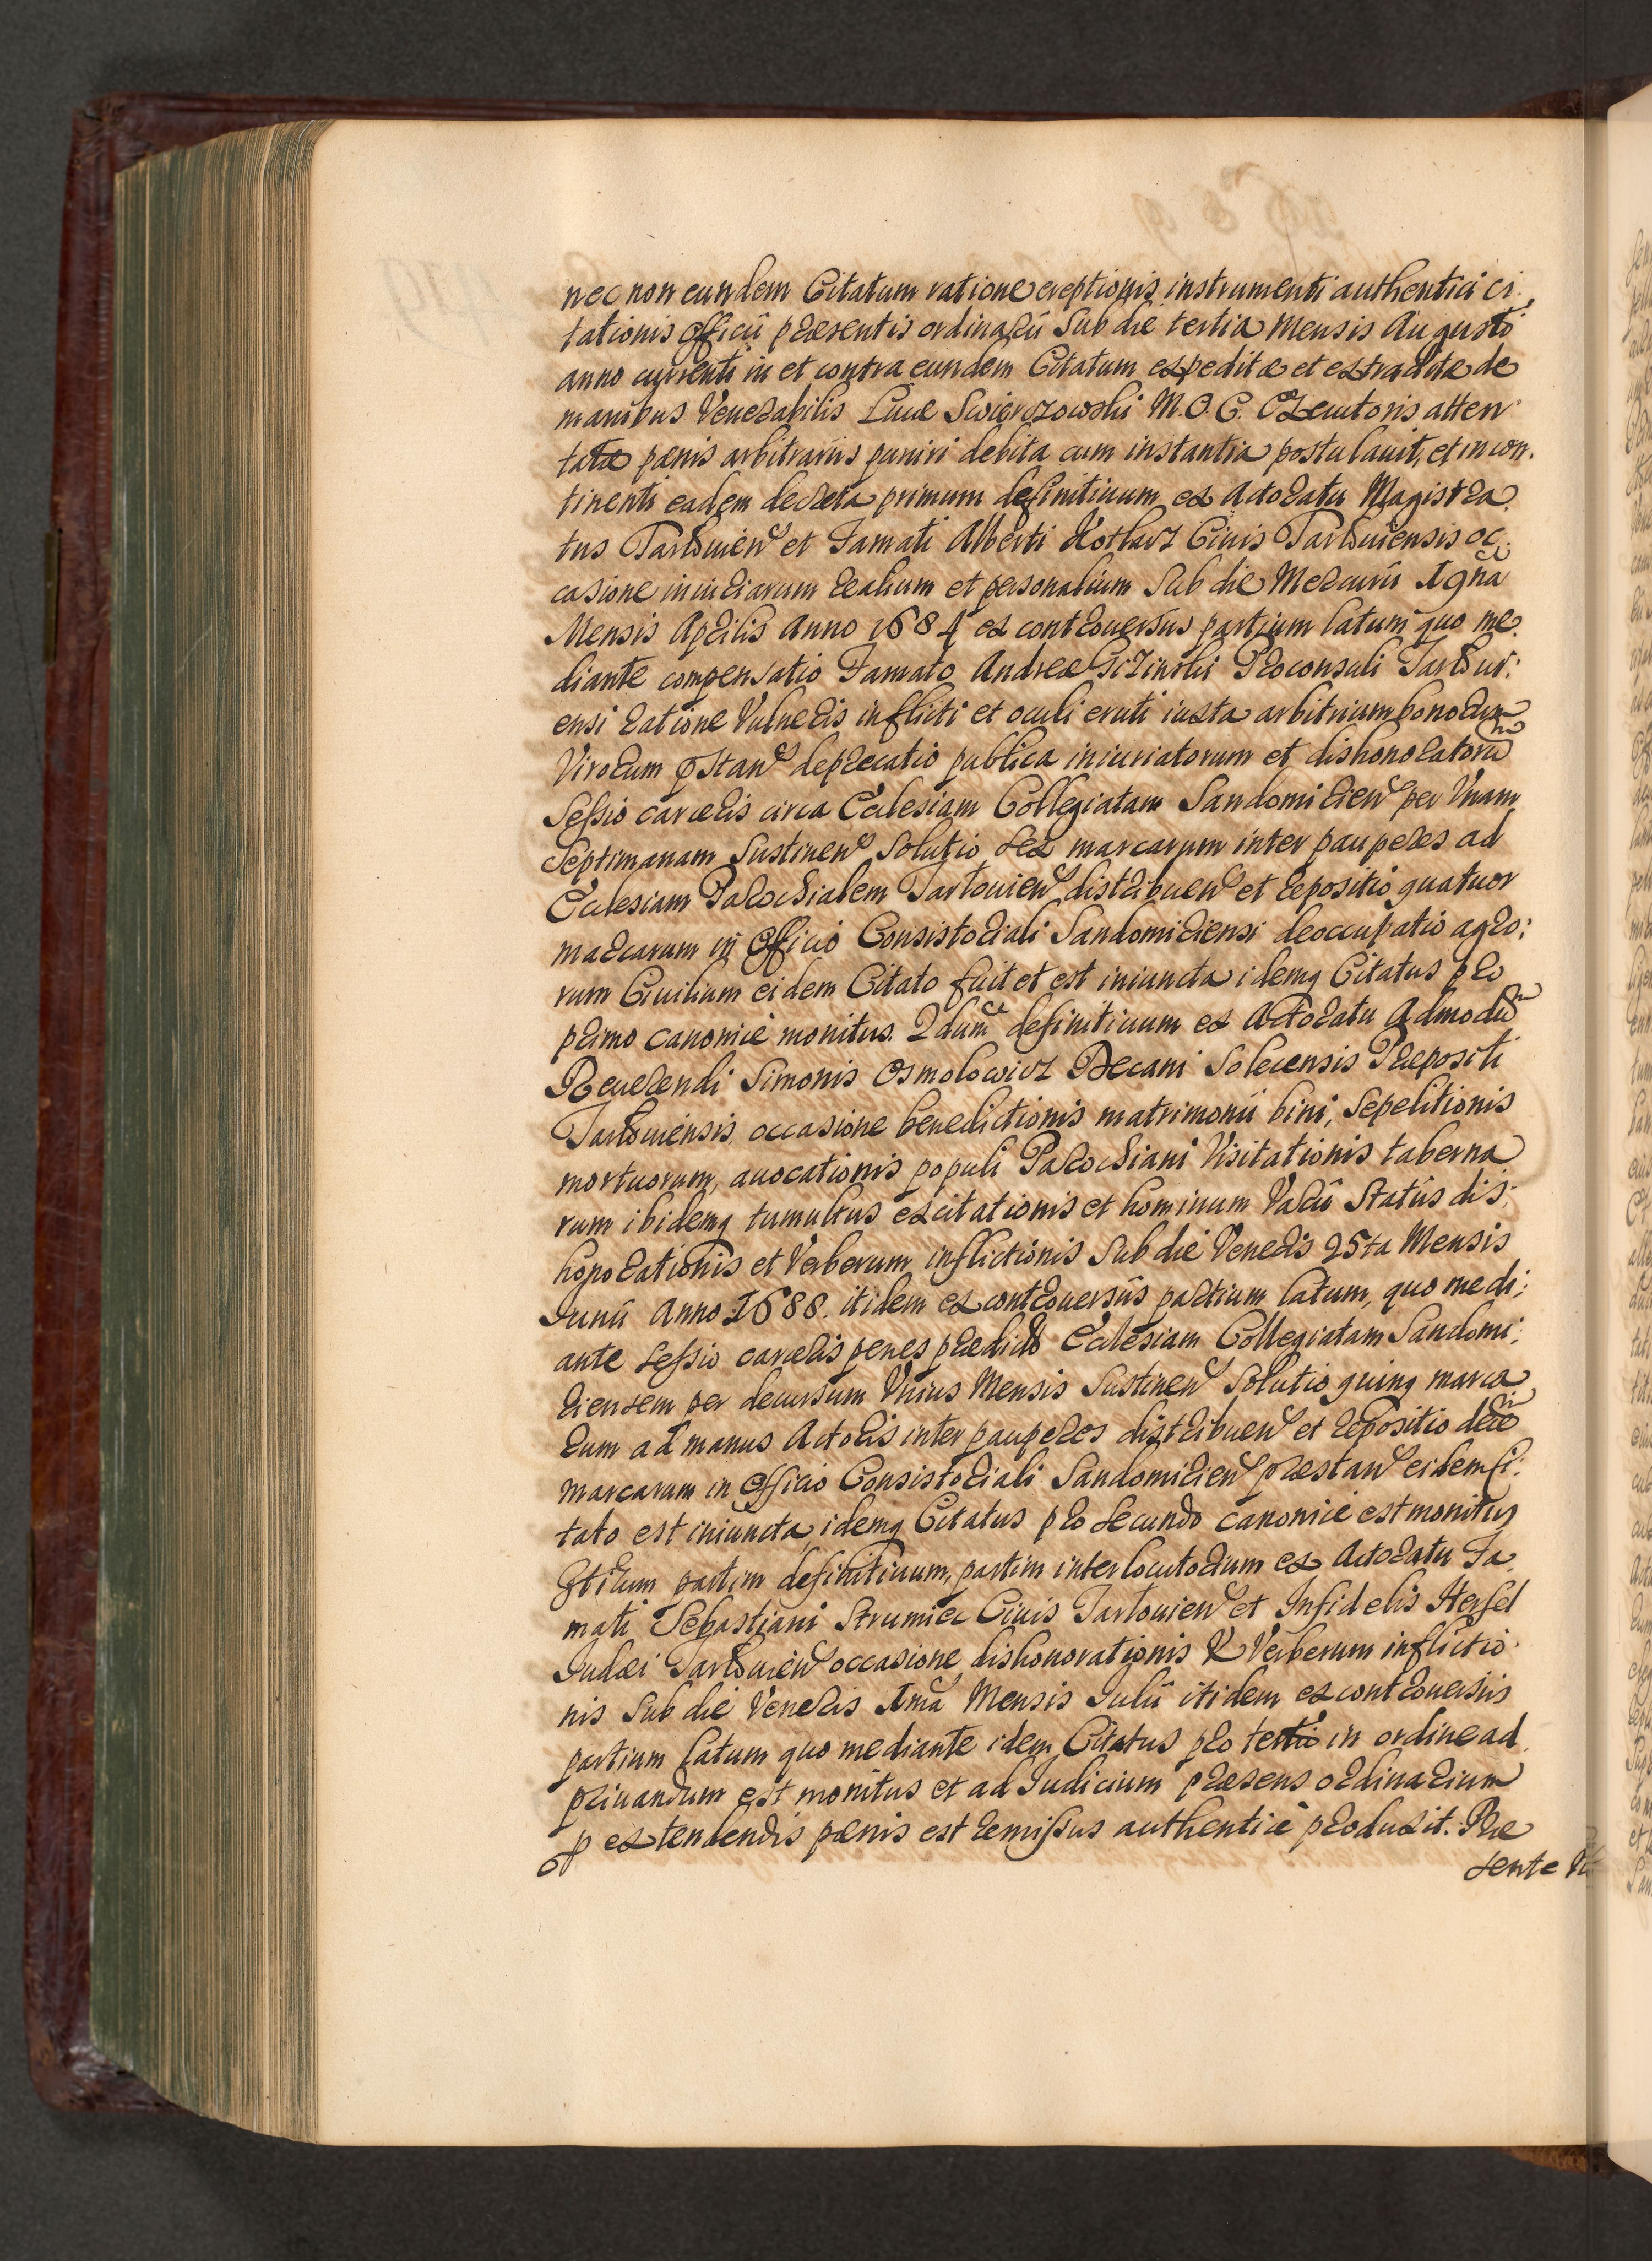 nec non eundem Citatum ratione ereptionis instrumenti authentici ci,
tationis Officii præsentis ordinarii Sub die tertia Mensis Augusti
anno currenti in et contra eundem Citatum expeditæ et extraditæ de
manibus Venerabilis Lucæ Swierczowski M.O.C. Exeutoris atten
tatæ pænis arbitrariis puniri debita cum instantia postulauit, et in con.
tinenti eadem decreta primum definitiuum ex Actoratu Magistra
tus Tarlouien et Famati Alberti Kotlarz Ciuis Tarlouiensis oc:
casione iniuriarum realium et personalium Sub die Mercurii
Mensis Aprilis Anno 1684 ex controuersiis partium latum quo me.
diante compensatio Famato Andreæ Proconsuli Tarloui:
ensi ratione Vulneris inflicti et oculi eruti iuxta arbitrium bonorum
Virorum pstan deprecatio publica iniuriatorum et dishonoratorum
Sessio carceris circa Ecclesiam Collegiatam Sandomirien per Vnam
Septimanam Sustinen Solutio Sex marcarum inter pauperes ad
Ecclesiam Parochialem Tarlouien distribuen et repositio quatuor
marcarum in Officio Consistoriali Sandomiriensi deoccupatio agro:
rum Ciuilium eidem Citato fuit et est iniuncta idemq Citatus pro
primo canonicè monitus. 2dum definitiuum ex Actoratu Admodum
Reuerendi Simonis Osmolowicz Decani Solecensis Præpositi
Tarlouiensis occasione benedictionis matrimonii bini, Sepelitionis
mortuorum, auocationis populi Parochiani Visitationis taberna
rum ibidemq tumultus excitationis et hominum Varii Statûs dis:
honorationis et Verberum inflictionis Sub die Veneris 25ta Mensis
Iunii Anno 1688. itidem ex controuersiis partium latum, quo medi:
ante Sessio carceris penes prædictã Ecclesiam Collegiatam Sandomi:
riensem per decursum Vnius Mensis Sustinen Solutio quinq marca
rum ad manus Actoris inter pauperes distribuen et repositio decem
marcarum in Officio Consistoriali Sandomirien præstan eidem Ci:
tato est iniuncta, idemq Citatus pro Secundo canonicè est monitus
3tium partim definitiuum, partim interlocutorium ex Actoratu Fa
mati Sebastiani Strumiec Ciuis Tarlouien et Infidelis Hersel
Iudæi Tarlouien occasione dishonorationis & Verberum inflictio
nis Sub die Veneris 1ma Mensis Iulii itidem ex controuersiis
partium latum quo mediante idem Citatus pro tertio in ordine ad
priuandum est monitus et ad Iudicium præsens ordinarium
p extendendis pænis est remissus authenticè produxit. Præ
sente